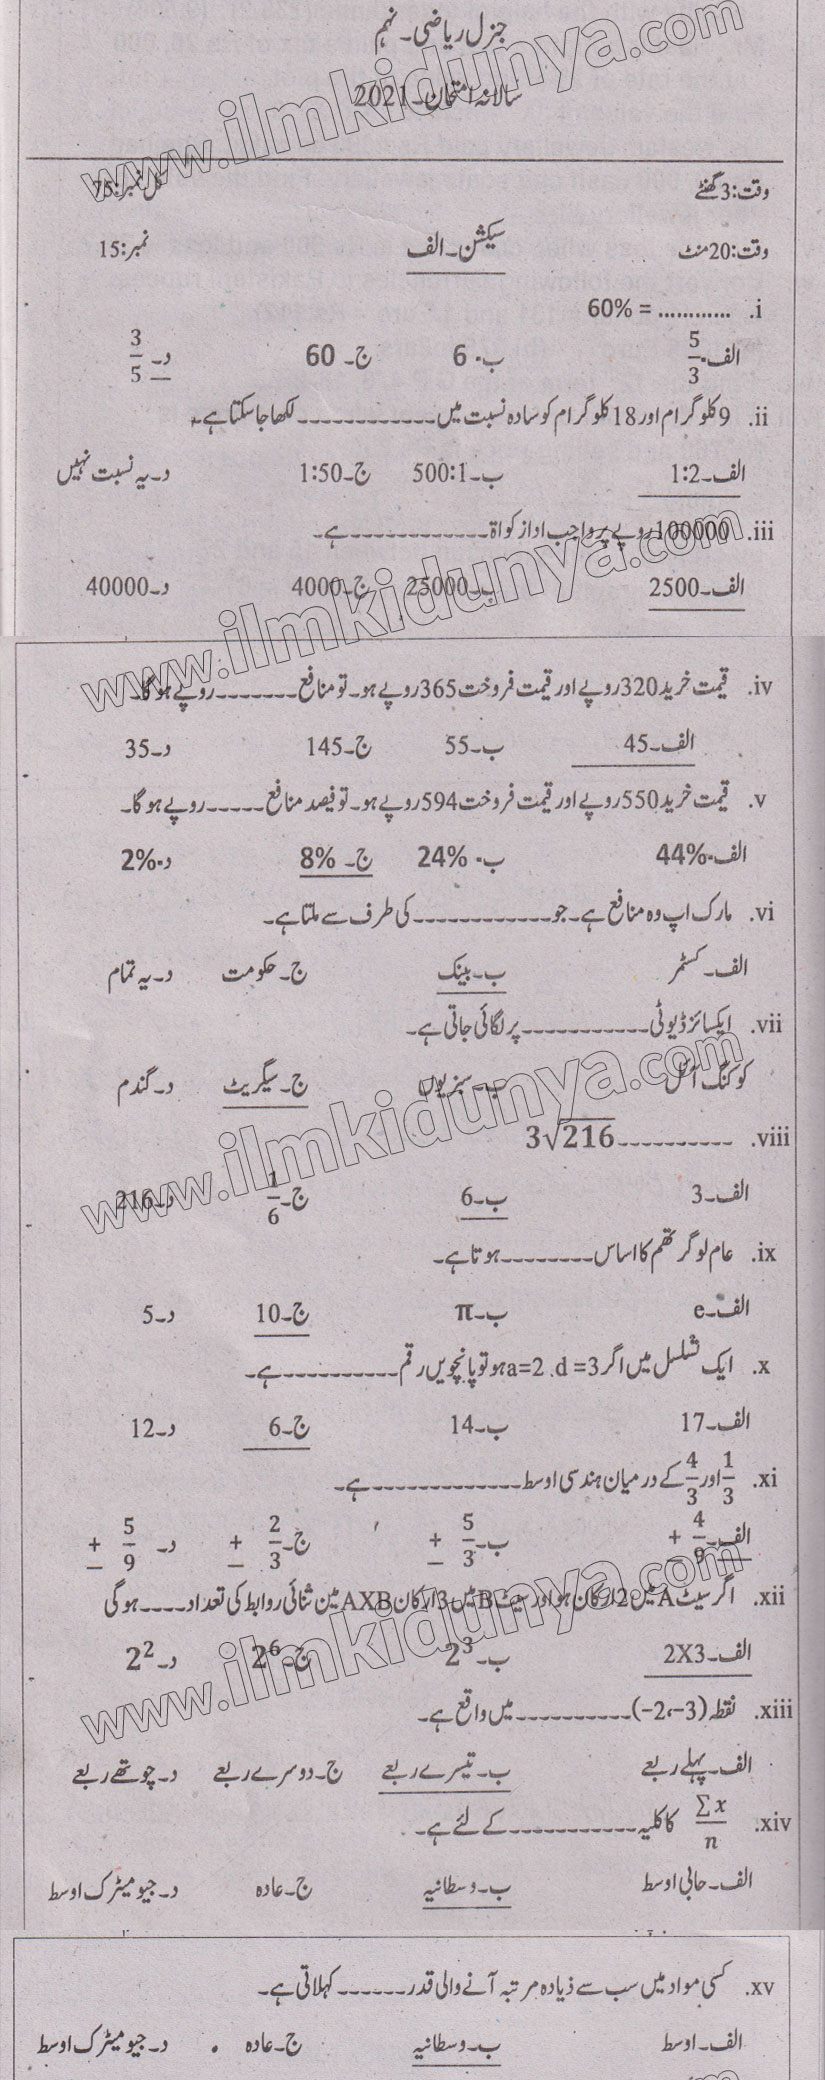 جنرل ریاضی۔ نہم
سالانہ امتحان۔2021
وقت:3 گھنٹے کل نمبر:75
وقت:20 منٹ سیکشن۔ الف نمبر:15
i. ............ = 60%
الف۔ 5/3 ب۔ 6 ج۔ 60 د۔ 3/5
ii. 9 کلو گرام اور 18 کلو گرام کو سادہ نسبت میں ------------ لکھا جا سکتا ہے۔
الف۔1:2 ب۔500:1 ج۔1:50 د۔ یہ نسبت نہیں
iii. 100000 روپے پر واجب ادا زکواۃ ------------ ہے۔
الف۔2500 ب۔25000 ج۔4000 د۔40000
iv. قیمت خرید 320 روپے اور قیمت فروخت 365 روپے ہو۔ تو منافع ------- روپے ہو گا۔
الف۔45 ب۔55 ج۔145 د۔35
v. قیمت خرید 550 روپے اور قیمت فروخت 594 روپے ہو۔ تو فیصد منافع ----- روپے ہو گا۔
الف۔44% ب۔24% ج۔8% د۔2%
vi. مارک اپ وہ منافع ہے۔ جو ------------ کی طرف سے ملتا ہے۔
الف۔ کسٹمر ب۔ بینک ج۔ حکومت د۔ یہ تمام
vii. ایکسائز ڈیوٹی ----------- پر لگائی جاتی ہے۔
کوکنگ آئل ب۔ سبزیوں ج۔ سیگریٹ د۔ گندم
viii. ---------- 3√216
الف۔3 ب۔6 ج۔1/6 د۔216
ix. عام لوگرتھم کا اساس -------- ہوتا ہے۔
الف۔e ب۔π ج۔10 د۔5
x. ایک تسلسل میں اگر a=2 ،d=3 ہو تو پانچویں رقم ---------- ہے۔
الف۔17 ب۔14 ج۔6 د۔12
xi. 1/3 اور 4/3 کے درمیان ہندسی اوسط ------------- ہے۔
الف۔ ± 4/9 ب۔ ± 5/3 ج۔ ± 2/3 د۔ ± 5/9
xii. اگر سیٹ A میں 2 ارکان ہو اور سیٹ B میں 3 ارکان AXB مین ثنائی روابط کی تعداد ---- ہو گی
الف۔2X3 ب۔2³ ج۔2⁶ د۔2²
xiii. نقطہ (-2،-3) ---------- میں واقع ہے۔
الف۔ پہلے ربعے ب۔ تیسرے ربعے ج۔ دوسرے ربعے د۔ چوتھے ربعے
xiv. ∑x/n کا کلیہ ----------- کے لئے ہے۔
الف۔ حابی اوسط ب۔ وسطانیہ ج۔ عادہ د۔ جیو میٹرک اوسط
xv. کسی مواد میں سب سے ذیادہ مرتبہ آنے والی قدر ------ کہلاتی ہے۔
الف۔ اوسط ب۔ وسطانیہ ج۔ عادہ د۔ جیو میٹرک اوسط
www.ilmkidunya.com
www.ilmkidunya.com
www.ilmkidunya.com
www.ilmkidunya.com